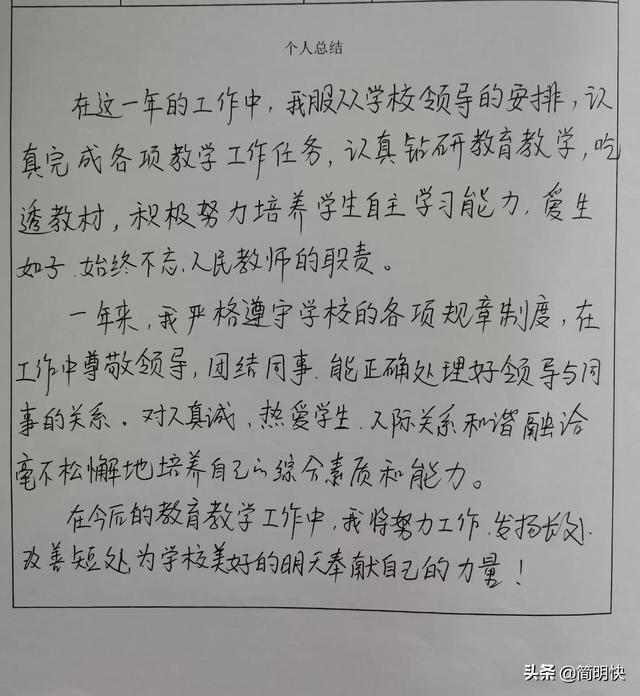 个人总结
在这一年的工作中，我服从学校领导的安排，认
真完成各项教学工作任务，认真钻研教育教学，吃
透教材，积极努力培养学生自主学习能力，爱生
如子、始终不忘人民教师的职责。
一年来，我严格遵守学校的各项规章制度，在
工作中尊敬领导，团结同事、能正确处理好领导与同
事的关系。对人真诚、热爱学生、人际关系和谐融洽
毫不松懈地培养自己的综合素质和能力。
在今后的教育教学工作中，我将努力工作、发扬长处、
改善短处，为学校美好的明天奉献自己的力量！
头条 @简明快